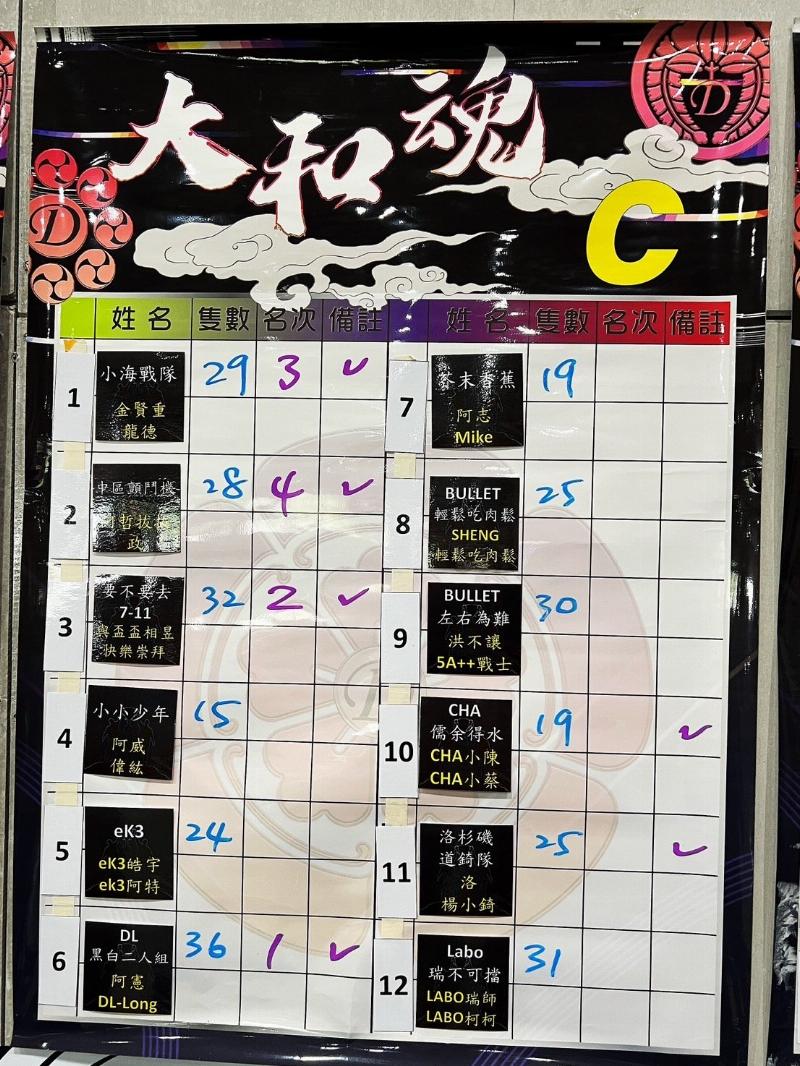 大和魂
D
D
C
姓名 隻數 名次 備註 姓名 隻數 名次 備註
1 小海戰隊 29 3 ✓
金賢重
龍德
2 中區顫鬥機 28 4 ✓
政
3 要不要去 32 2 ✓
7-11
與盃盃相昱
快樂崇拜
4 小小少年 15
阿威
偉紘
5 eK3 24
eK3皓宇
ek3阿特
6 DL 36 1 ✓
黑白二人組
阿憲
DL-Long
7 芥末香蕉 19
阿志
Mike
8 BULLET 25
輕鬆吃肉鬆
SHENG
輕鬆吃肉鬆
9 BULLET 30
左右為難
洪不讓
5A++戰士
10 CHA 19 ✓
儒余得水
CHA小陳
CHA小蔡
11 洛杉磯 25 ✓
道錡隊
洛
楊小錡
12 Labo 31
瑞不可擋
LABO瑞師
LABO柯柯